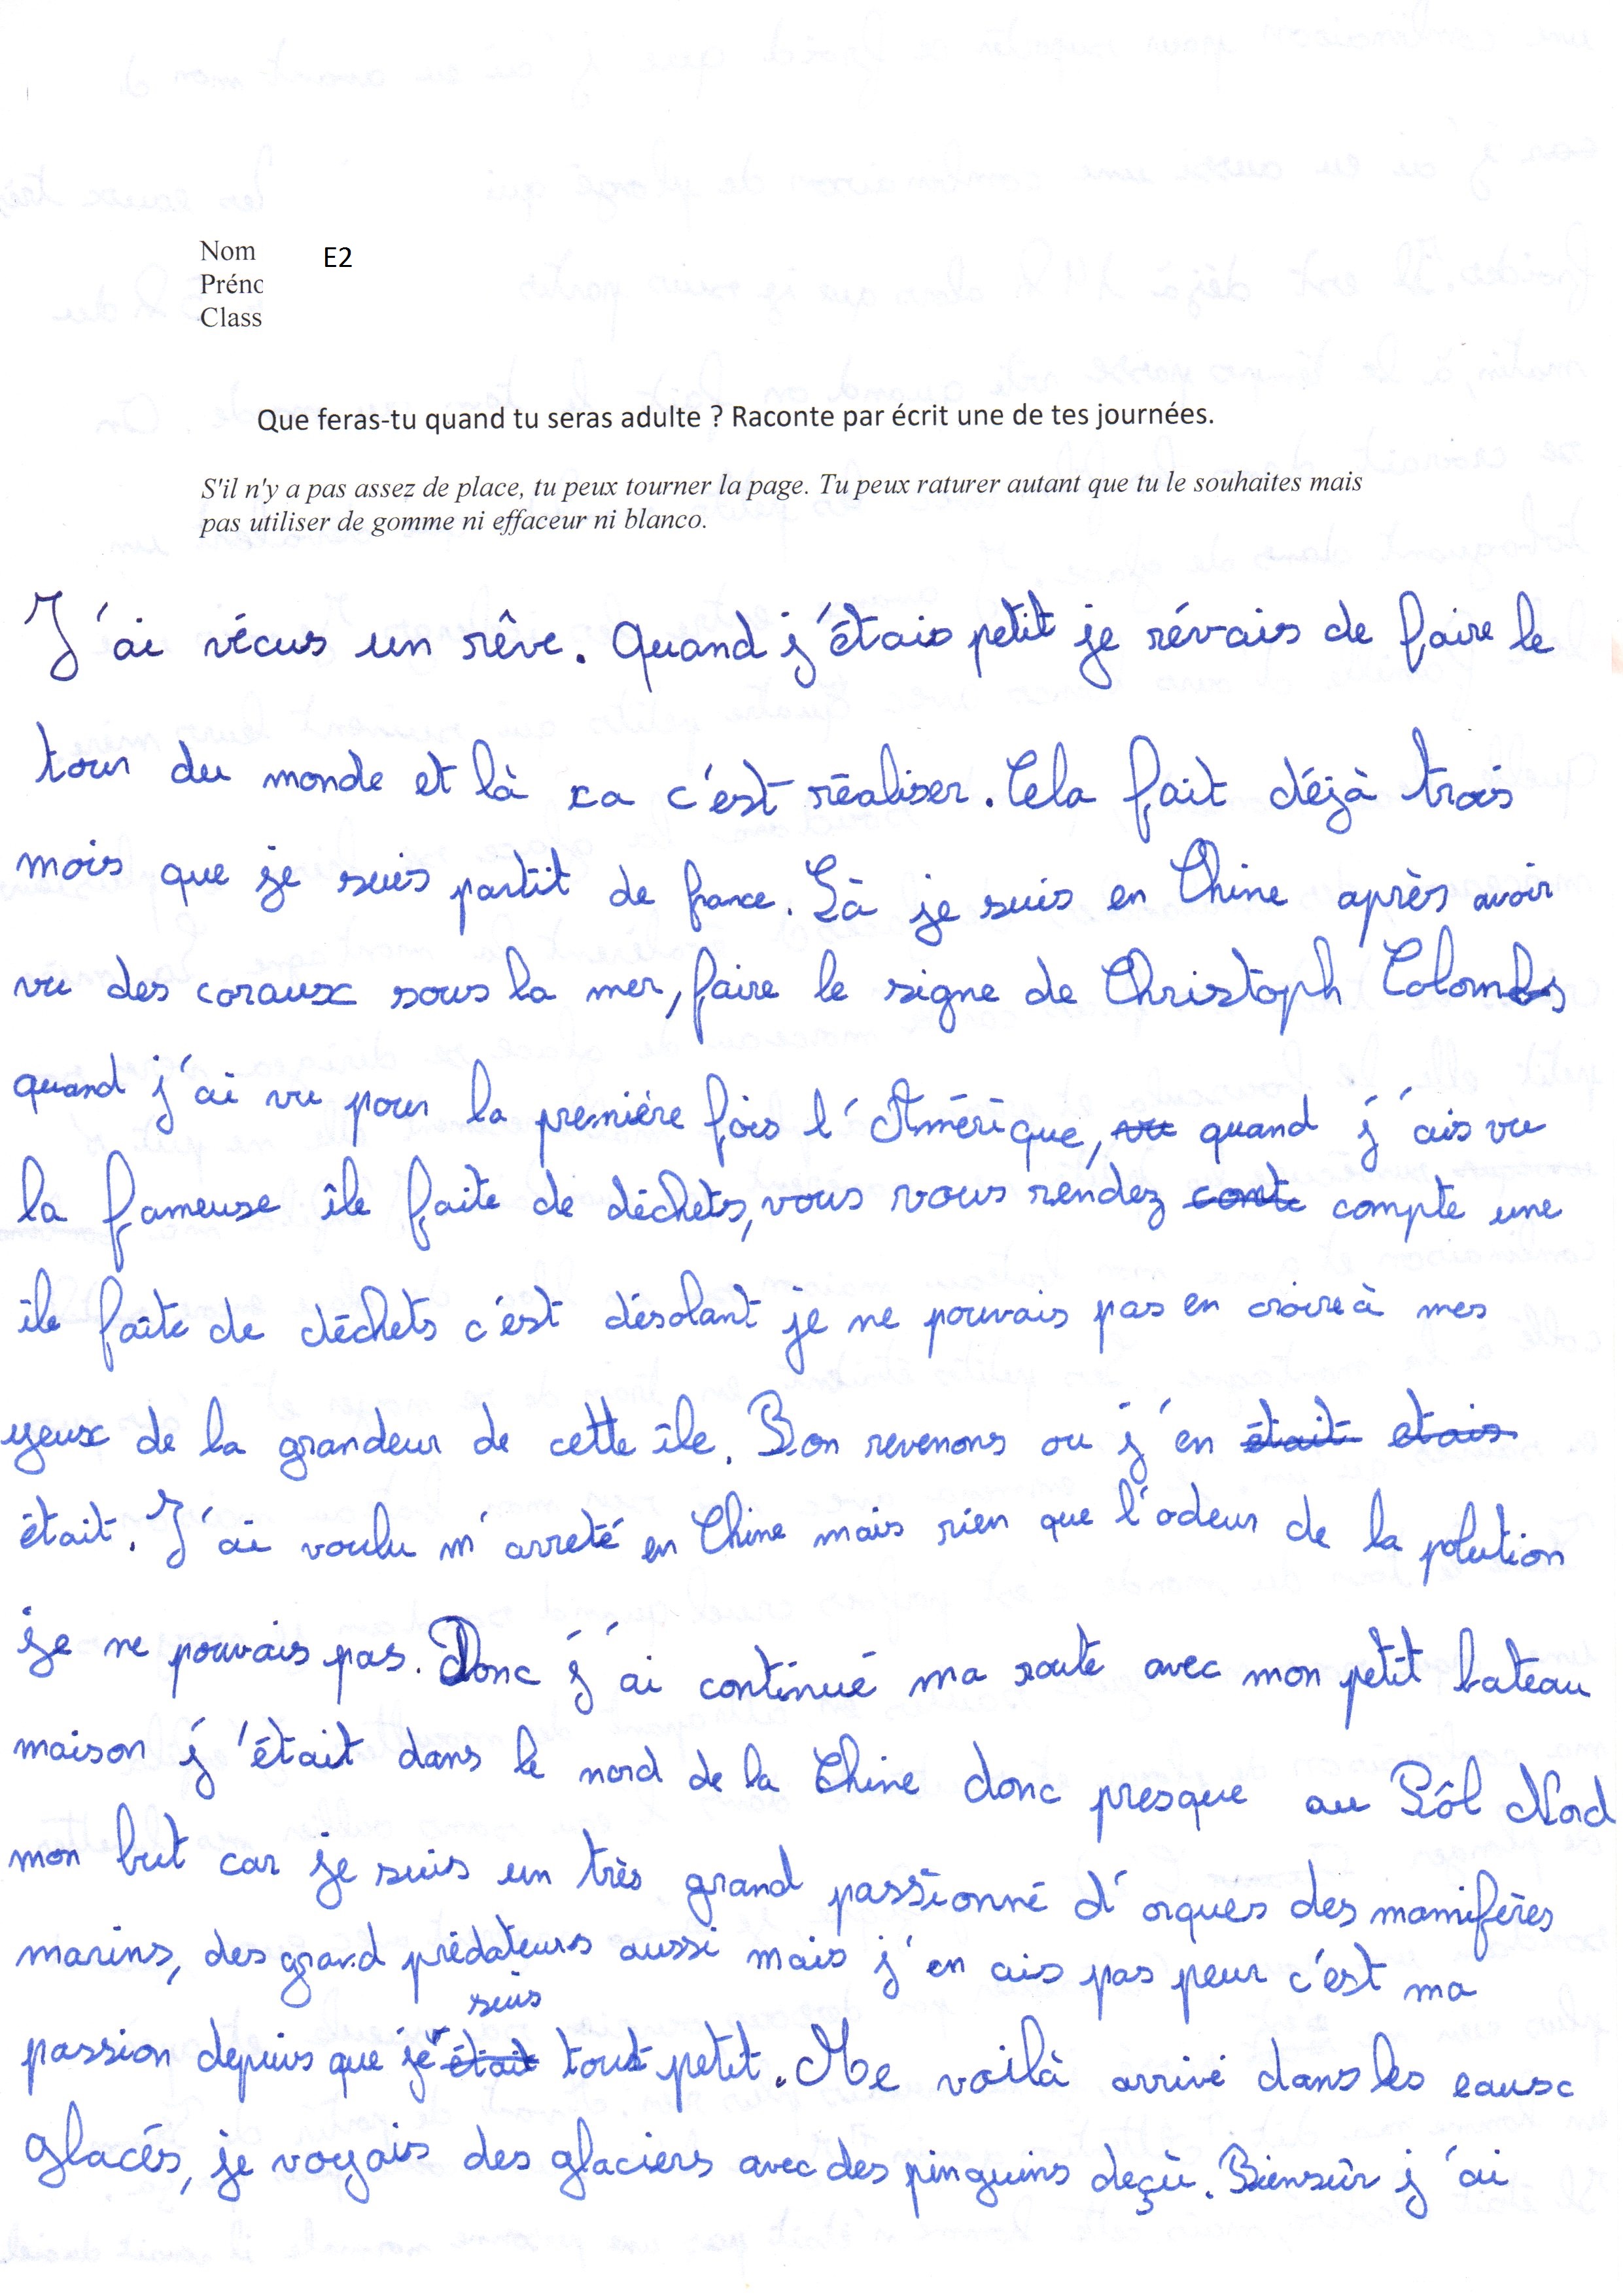 Nom
E2
Préno
Class
Que feras-tu quand tu seras adulte ? Raconte par écrit une de tes journées.
S'il n'y a pas assez de place, tu peux tourner la page. Tu peux raturer autant que tu le souhaites mais
pas utiliser de gomme ni effaceur ni blanco.
J'ai vécus un rêve. Quand j'étais petit je révais de faire le
tour du monde et là ca c'est réaliser. Cela fait déjà trois
mois que je suis partit de france. Là je suis en Chine après avoir
vu des coraux sous la mer, faire le signe de Christoph Colombs
quand j'ai vu pour la première fois l'Amérique, vu quand j'ais vu
la fameuse île faite de déchets, vous vous rendez conte compte une
île faîte de déchets c'est désolant je ne pouvais pas en croire à mes
yeux de la grandeur de cette île. Bon revenons ou j'en était etais
était. J'ai voulu m'arreté en Chine mais rien que l'odeur de la polution
je ne pouvais pas. Donc j'ai continué ma route avec mon petit bateau
maison j'était dans le nord de la Chine donc presque au Pôl Nord
mon but car je suis un très grand passionné d'orques des mamifères
marins, des grand prédateurs aussi mais j'en ais pas peur c'est ma
suis
passion depuis que je était tout petit. Me voilà arrivé dans les eaux
glacés, je voyais des glaciers avec des pinguins deçù. Biensûr j'ai